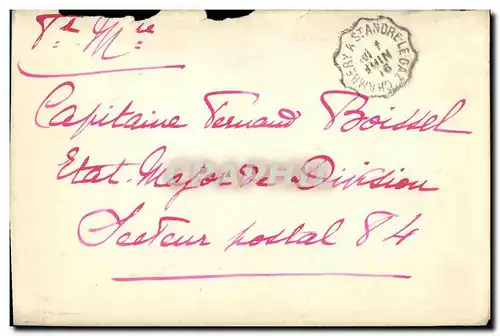 Fd Mre
CHAMBERY A ST ANDRE-LE GAZ
4
JUIN
16
Capitaine Fernand Boissel
Etat-Major de Division
Secteur postal 84